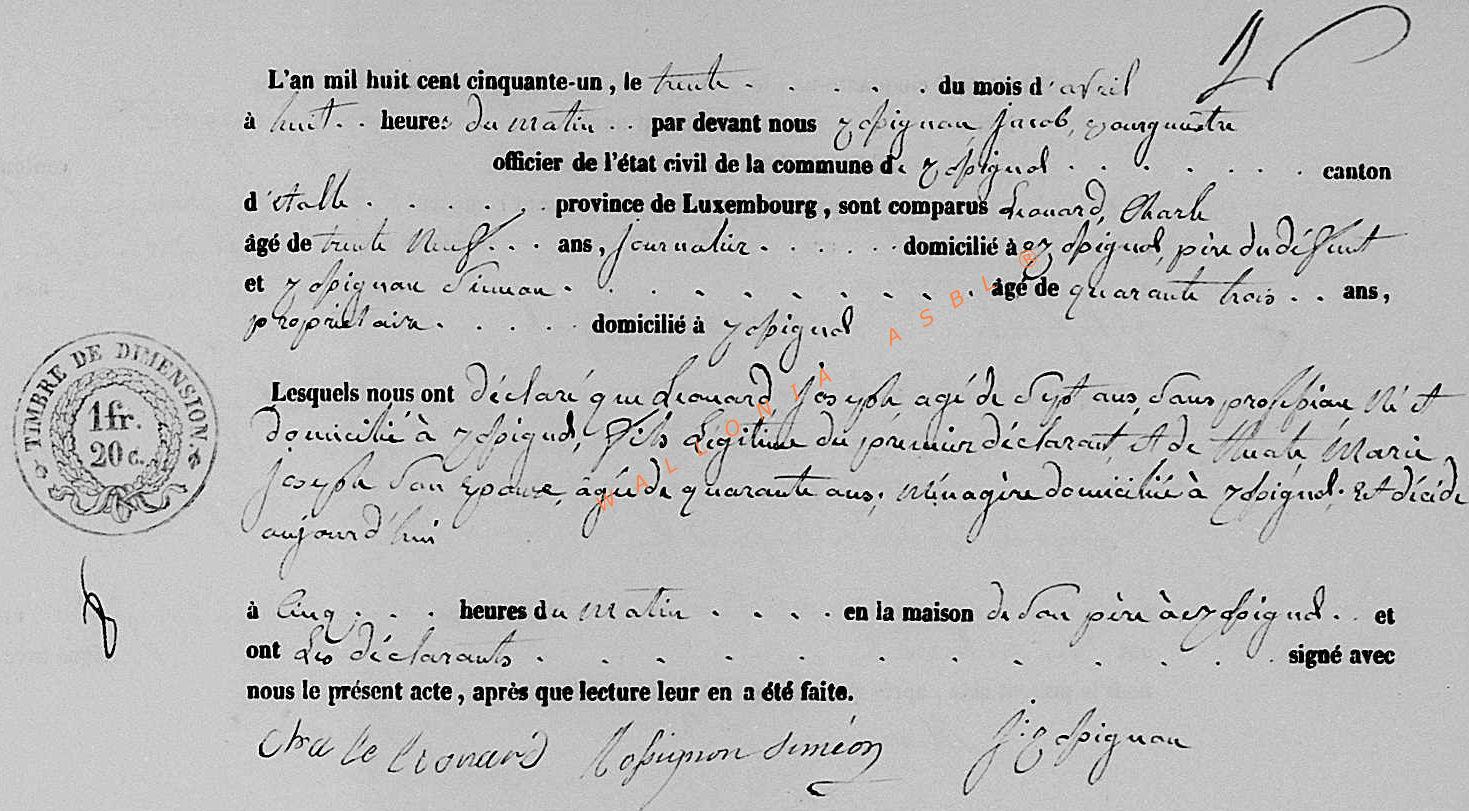 L'an mil huit cent cinquante-un, le trente . . . . . du mois d'avril
à huit . . heures du matin . . par devant nous Rossignon, Jacob, Bourgmestre
officier de l'état civil de la commune de Rossignol . . . . . . . canton
d'étalle . . . . . . province de Luxembourg, sont comparus Léonard, Charle
âgé de trente neuf . . . ans, journalier . . . . . . domicilié à Rossignol, père du défunt
et Rossignon Siméon . . . . . . . . . . âgé de quarante trois . . ans,
propriétaire . . . . . domicilié à Rossignol
Lesquels nous ont déclaré que Léonard Joseph agé de Sept ans Sans profession Né et
domicilié à Rossignol, fils Légitime du premier déclarant, et de Marie
joseph Son Epouse, âgée de quarante ans, Ménagère domiciliée à Rossignol, Est décédé
aujourd'hui
à Cinq . . . heures du matin . . . . en la maison de Son père à Rossignol . . et
ont Les déclarants . . . . . . . . . . . signé avec
nous le présent acte, après que lecture leur en a été faite.
Charle Léonard Rossignon Siméon J: Rossignon
TIMBRE DE DIMENSION.
1 fr.
20 c.
WALLONIA ASBL ®